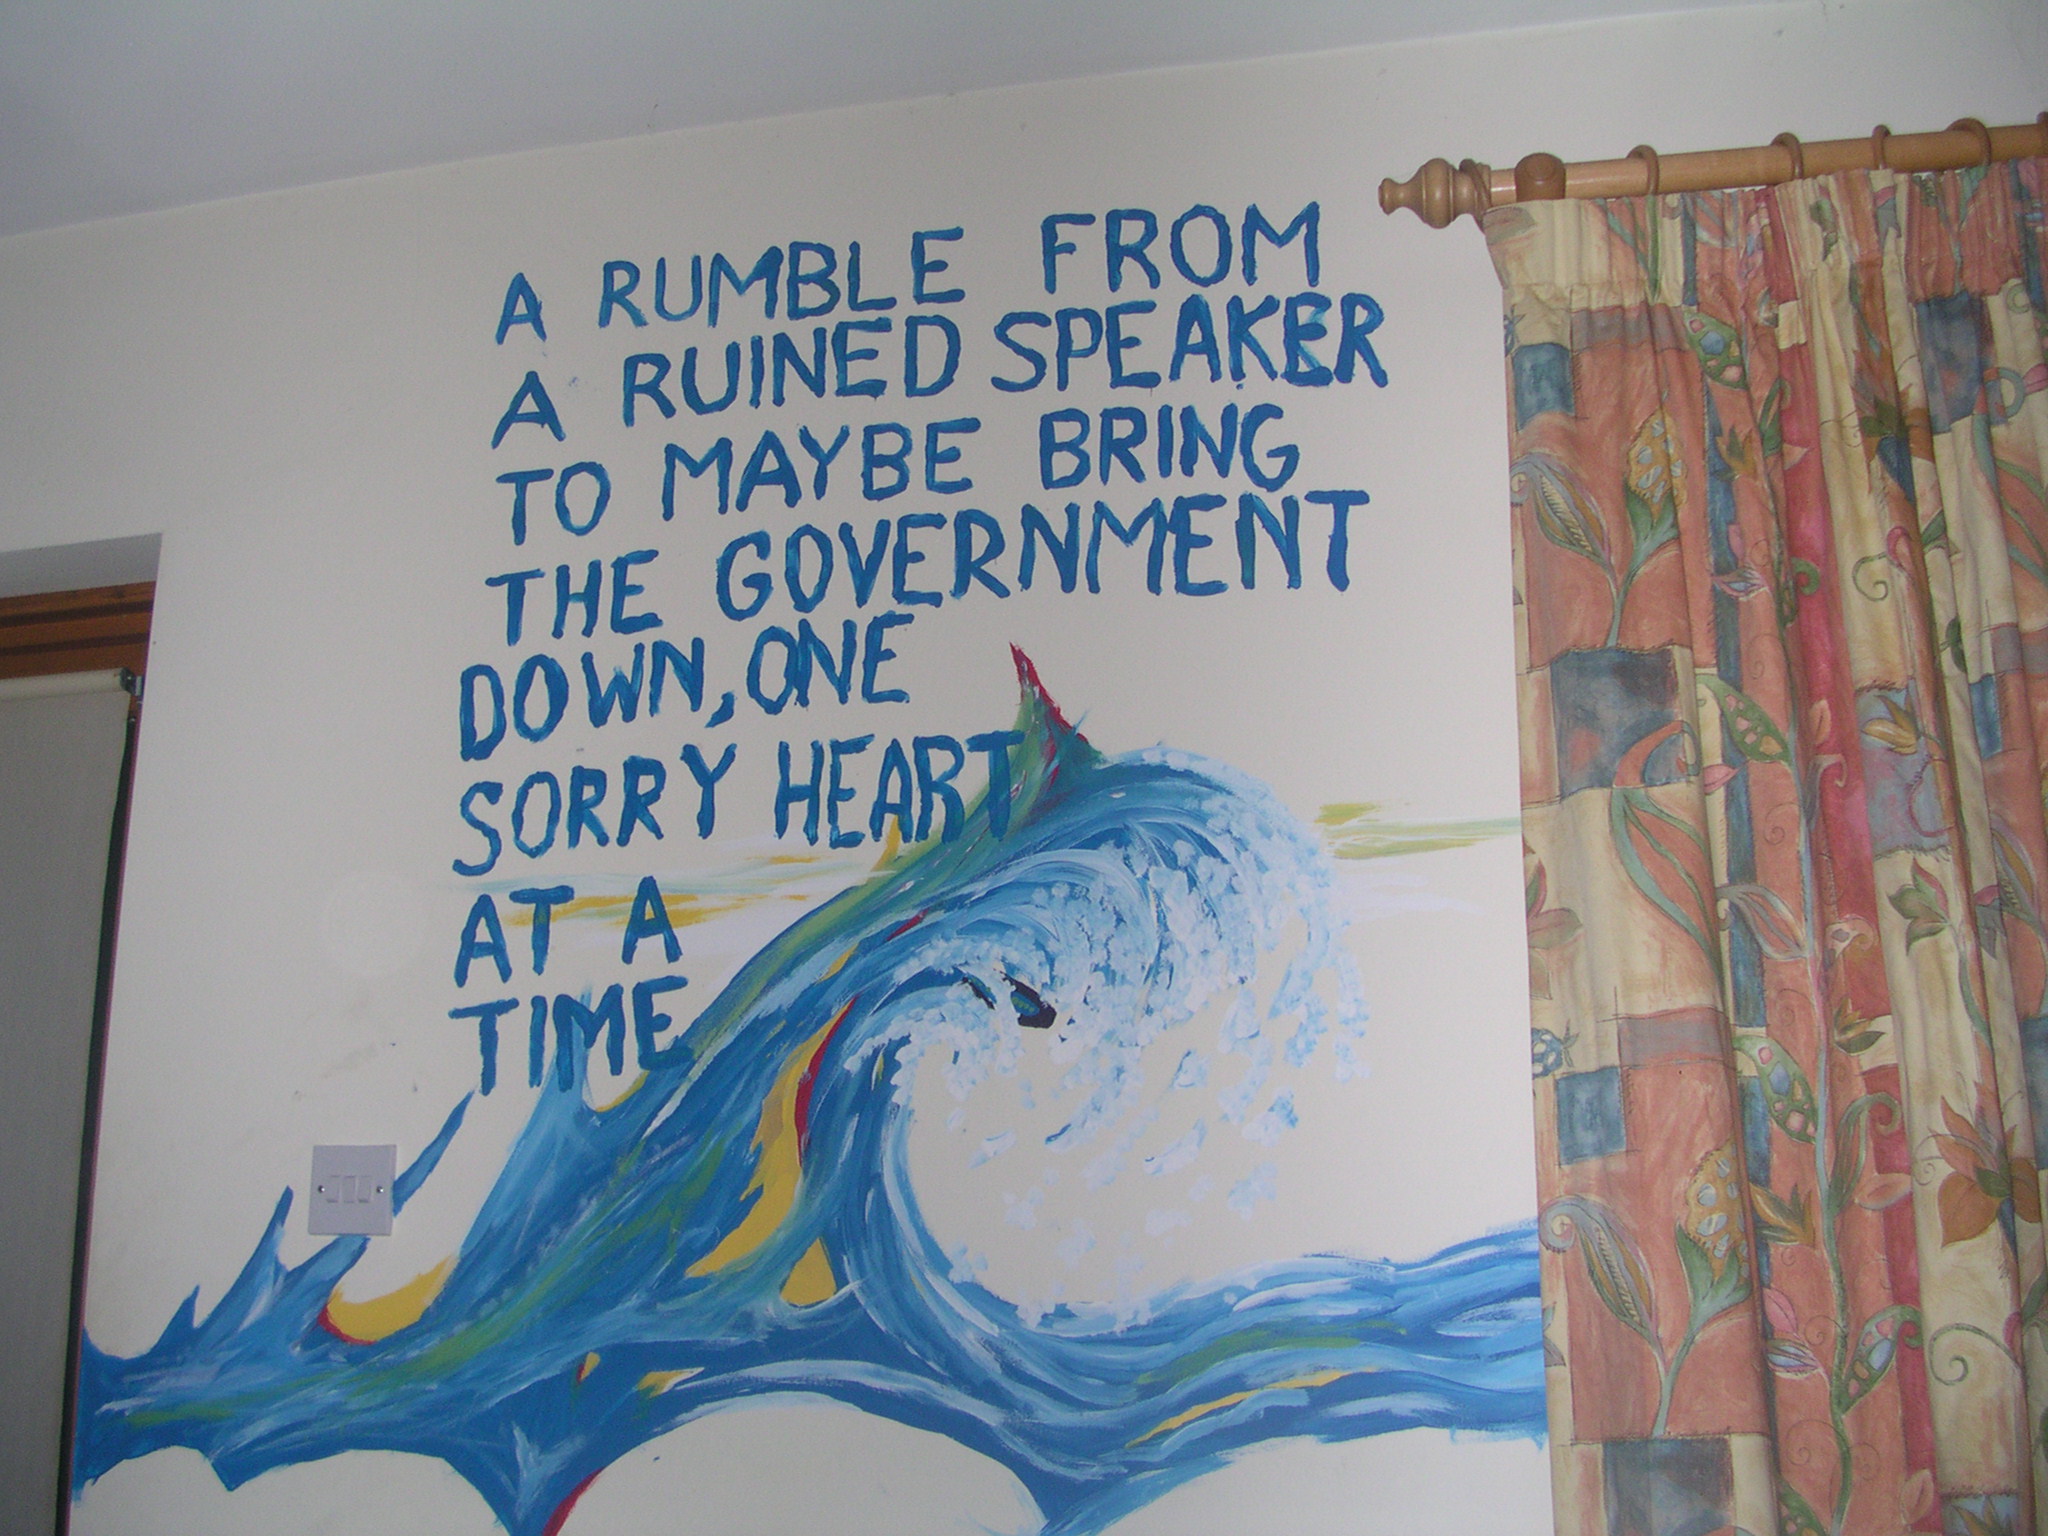 A RUMBLE FROM
A RUINED SPEAKER
TO MAYBE BRING
THE GOVERNMENT
DOWN, ONE
SORRY HEART
AT A
TIME